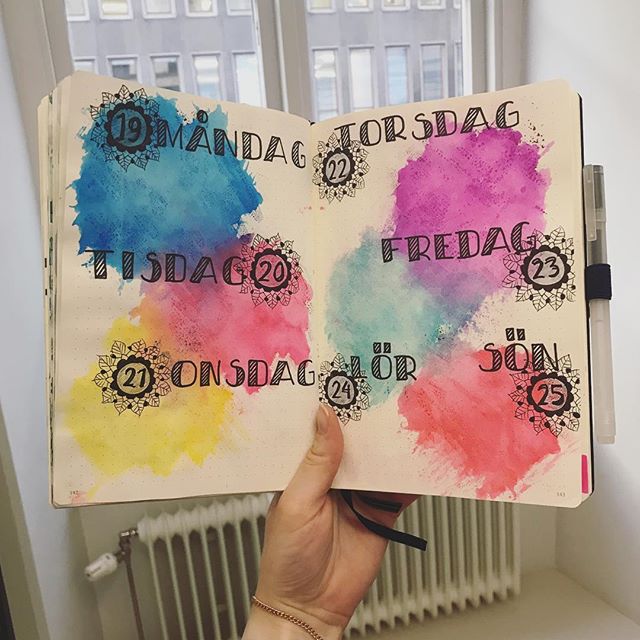 19 MÅNDAG
TISDAG 20
21 ONSDAG
142
TORSDAG
22
FREDAG
23
LÖR
24
SÖN
25
143